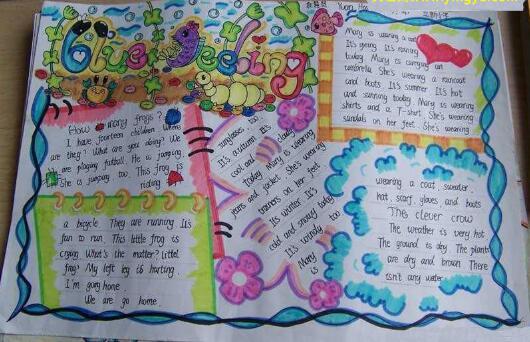 Blue Feeling
How many frogs?
I have fourteen children. Where
are they? What are you doing? We
are playing futball. He is jumping.
She is jumping too. This frog is
riding
a bicycle. They are running It's
fun to run. This little frog is
crying. What's the matter? Little
frog? My left leg is hurting.
I'm going home
We are go home.
Mary is wearing a
It's spring It's raining
today Mary is carrying an
umbrella. She's wearing a raincoat
and boots It's summer. It's hot
and sunning today. Mary is wearing
shirts and a T-shirt. She's wearing
sandals on her feet. She's wearing
sunglasses too.
It's autumn It's
cool and today
today Mary is wearing
jeans and jacket. She's wearing
trainers on her feet
It's winter It's
cold and snowy today
It's windy too
Mary
is
wearing a coat, sweater,
hat scarf, gloves and boots
The clever crow
The weather is very hot
The ground is dry. The plants
are dry and brown. There
isn't any water